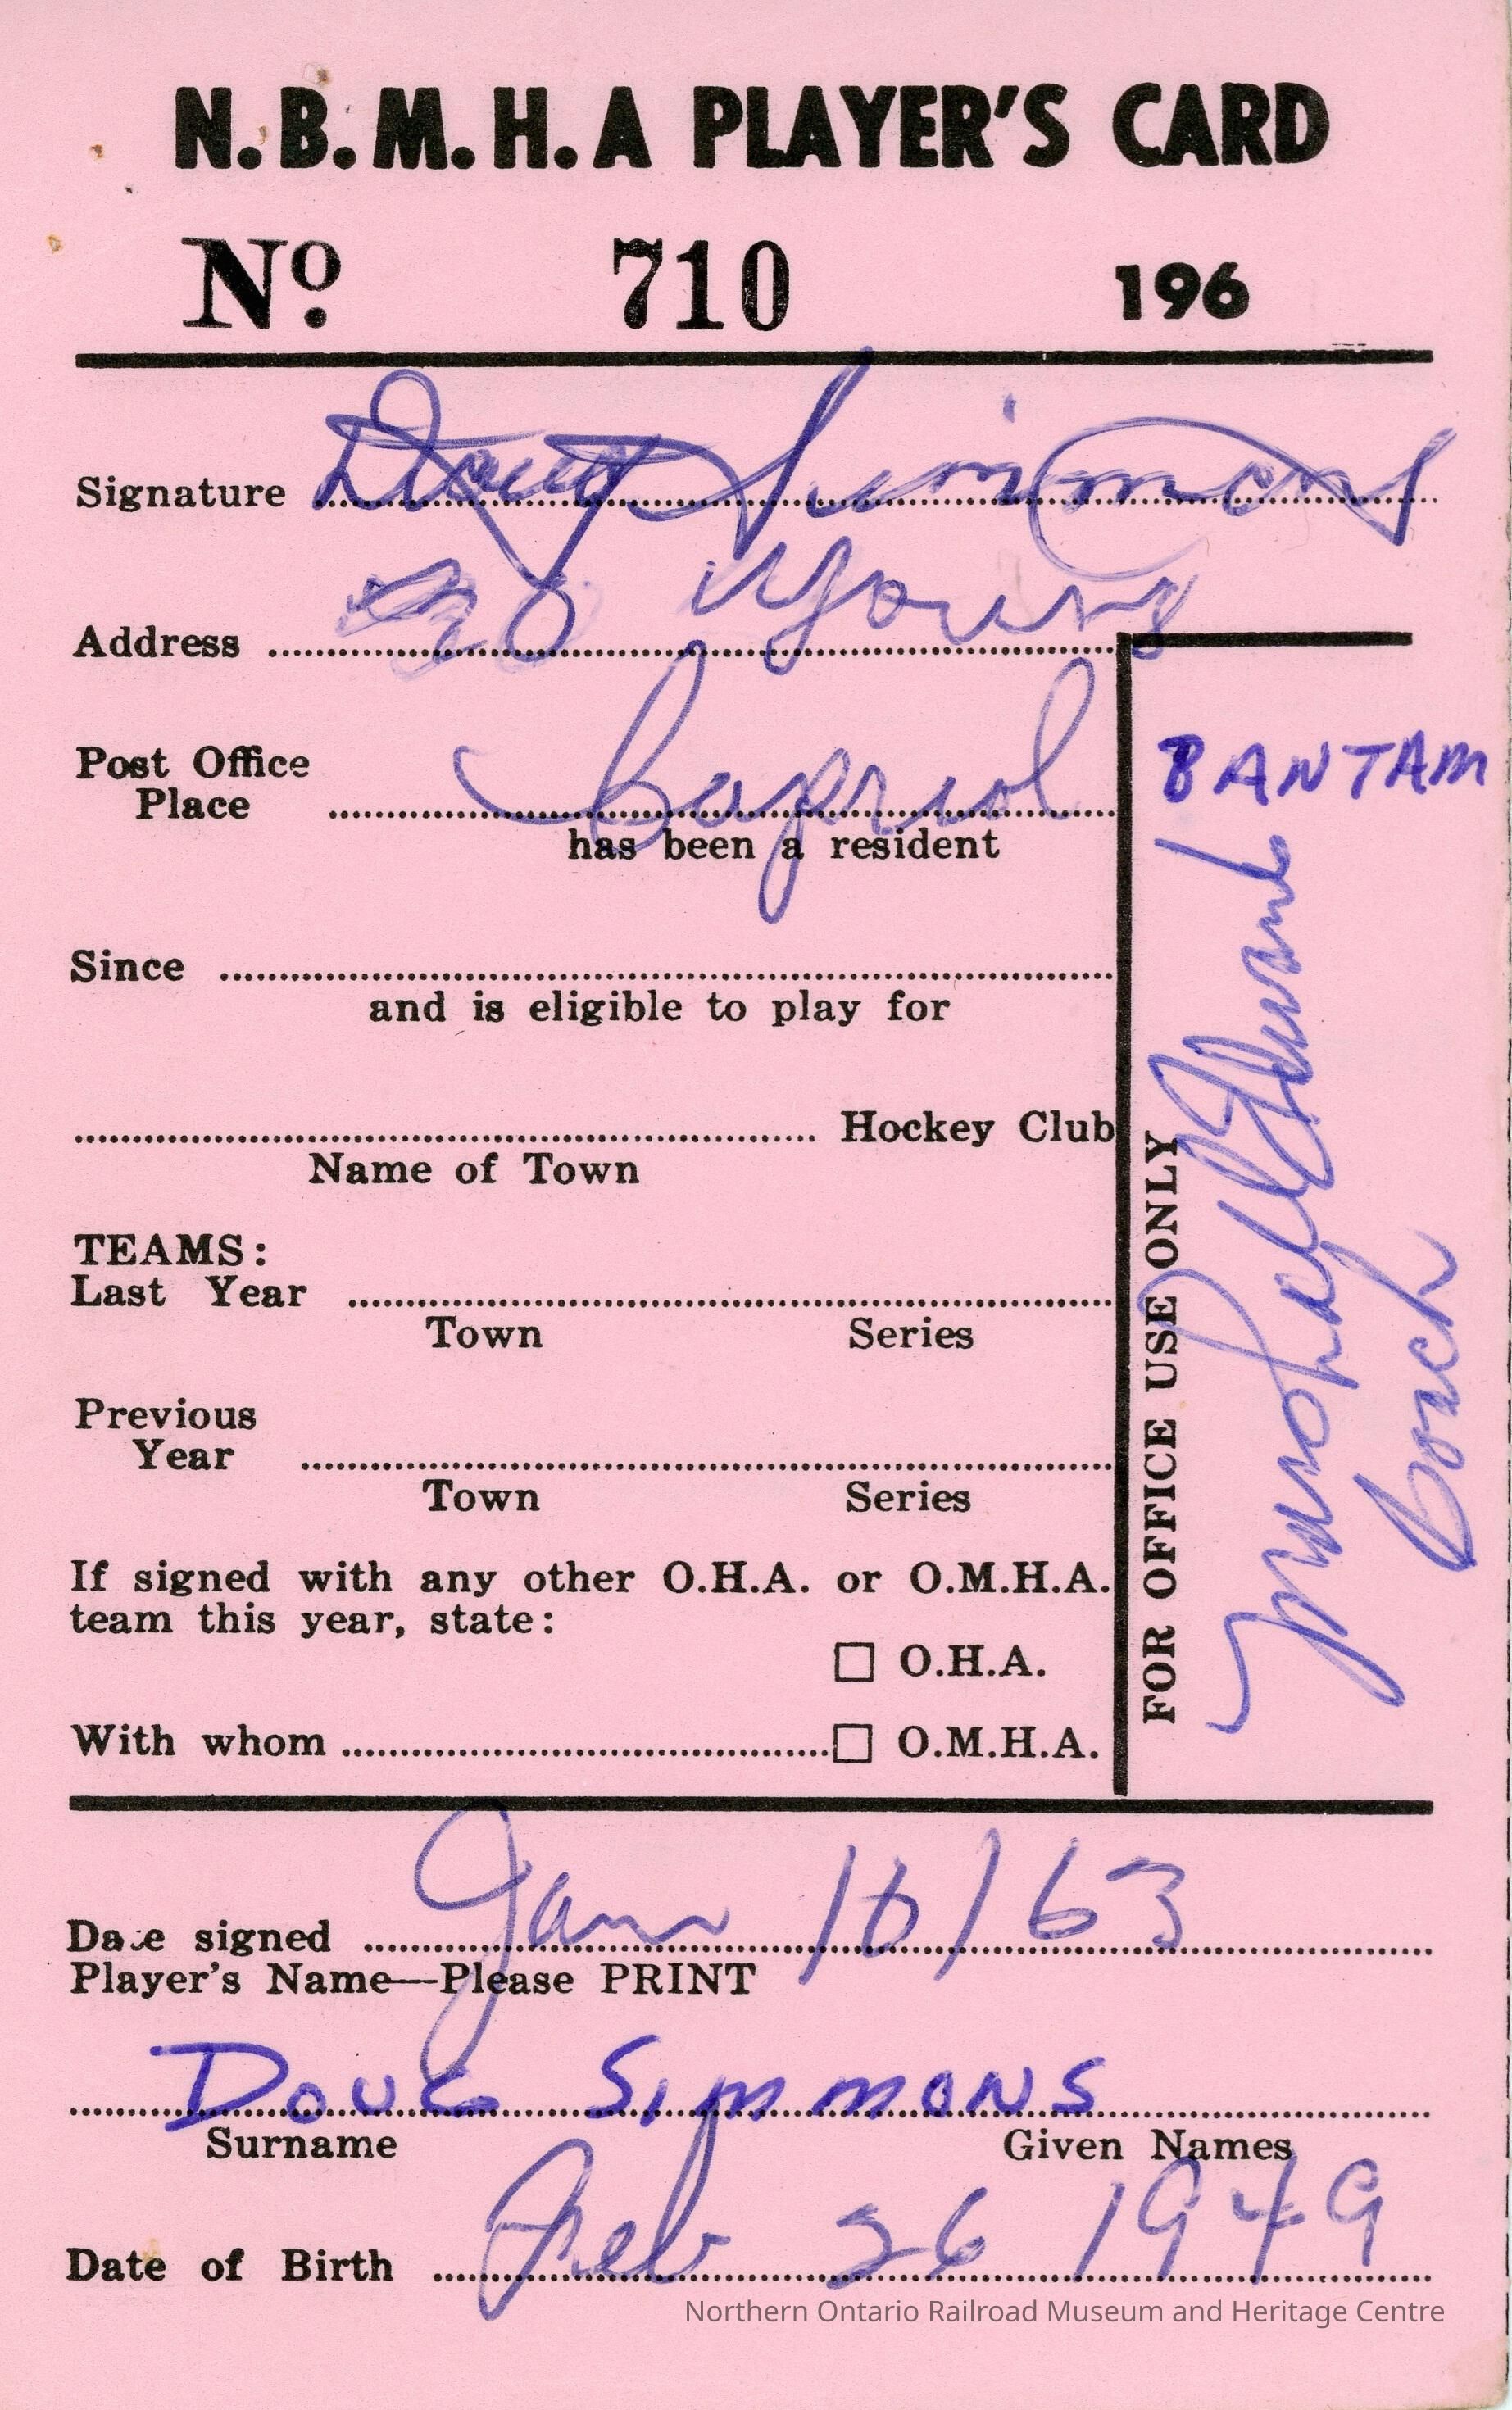 N.B.M.H.A PLAYER'S CARD
No. 710 196
Signature Doug Simmons
Address 20 Young
Post Office Place Capriol
has been a resident
Since
and is eligible to play for
Hockey Club
Name of Town
TEAMS:
Last Year
Town Series
Previous Year
Town Series
If signed with any other O.H.A. or O.M.H.A.
team this year, state:
O.H.A.
With whom O.M.H.A.
BANTAM
FOR OFFICE USE ONLY
Marshall
Coach
Date signed Jan 10/63
Player's Name—Please PRINT
DOUG SIMMONS
Surname Given Names
Date of Birth Feb 26 1949
Northern Ontario Railroad Museum and Heritage Centre